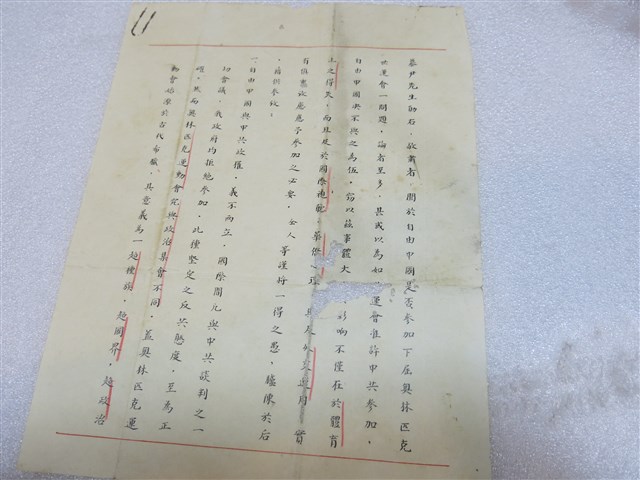 11
慕尹先生勛右，敬肅者，關於自由中國是否參加下屆奧林匹克
世運會一問題，論者至多，其或以為如運會准許中共參加，
自由中國決不與之為伍，竊以茲事體大影响不僅在於體育
上之得失，而且足於國際視聽、華僑心理、外交運用實
有應予參加之必要，仝人等謹将一得之愚，臚陳於后
，藉供參攷：
一、自由中國與中共政權，義不両立，國際間凡與中共談判之一
切會議，我政府均拒絶參加，此種堅定之反共態度，至為正
確，然而奧林匹克運動會究與政治集會不同，蓋奧林匹克運
動會始源於古代希臘，其意義為一超種族，超國界，超政治